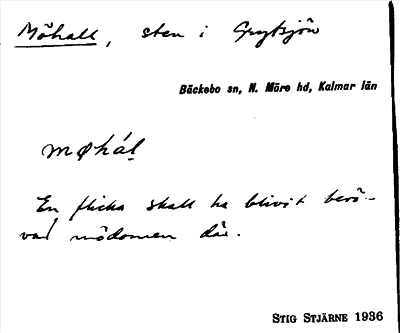 Möhall, sten i Grytsjön
Bäckebo sn, N. Möre hd, Kalmar län
møhál
En flicka skall ha blivit berö-
vad mödomen där.
STIG STJÄRNE 1936